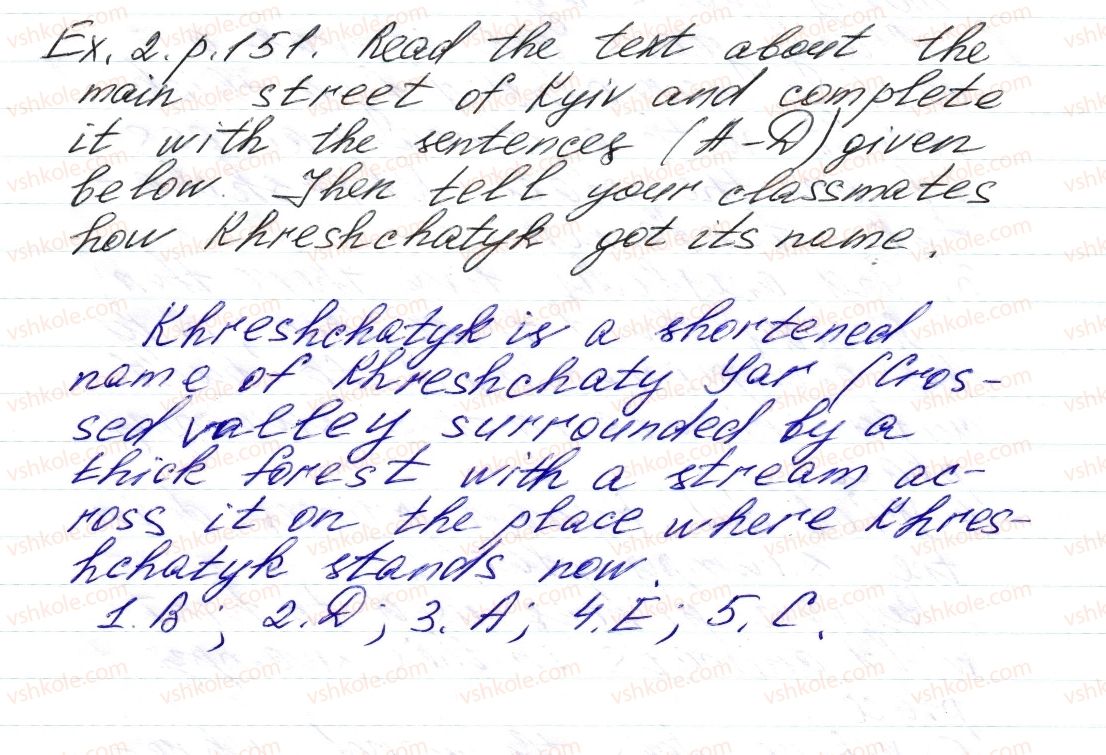 Ex. 2. p. 151. Read the text about the
main street of Kyiv and complete
it with the sentences (A-D) given
below. Then tell your classmates
how Khreshchatyk got its name.
Khreshchatyk is a shortened
name of Khreshchaty Yar (Cros-
sed valley surrounded by a
thick forest with a stream ac-
ross it on the place where Khres-
hchatyk stands now.
1. B; 2. D; 3. A; 4. E; 5. C.
vshkole.com